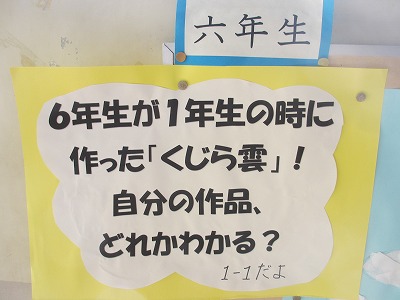 六年生
6年生が1年生の時に
作った「くじら雲」!
自分の作品、
どれかわかる？
1-1だよ